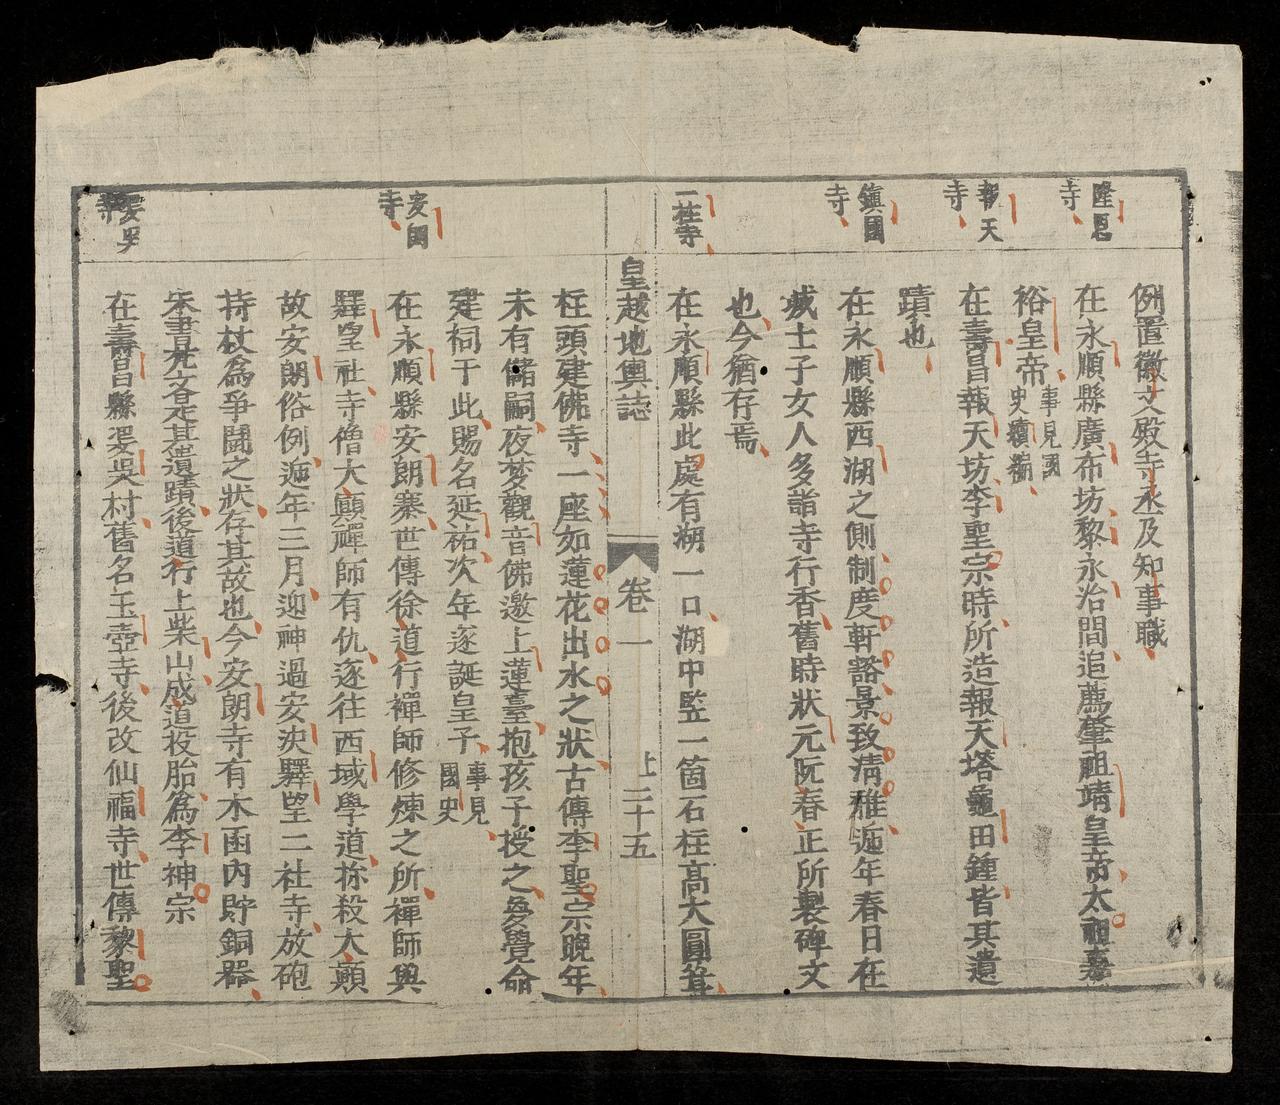 例置徽文殿寺丞及知事職
隆恩寺
在永順縣廣布坊黎永治間追薦肇祖靖皇帝太祖嘉
裕皇帝事見國史續編
報天寺
在壽昌報天坊李聖宗時所造報天塔龜田鍾皆其遺
蹟也
鎮國寺
在永順縣西湖之側制度軒豁景致淸雅遞年春日在
城士子女人多詣寺行香舊時狀元阮春正所製碑文
也今猶存焉
一柱寺
在永順縣此處有湖一口湖中監一箇石柱高大圓
皇越地輿誌
卷一
上二十五
柱頭建佛寺一座如蓮花出水之狀古傳李聖宗晚年
未有儲嗣夜梦觀音佛邀上蓮臺抱孩子授之覺命
建祠于此賜名延祐次年逐誕皇子事見國史
安國寺
在永順縣安朗寨世傳徐道行禪師修煉之所禪師與
驛望社寺僧大顛禪師有仇逐往西域學道殺大顛
故安朗俗例遞年三月迎神過安決驛望二社寺放砲
持杖為爭鬪之狀存其故也今安朗寺有木函內貯銅器
朱書梵其遺蹟後道行上柴山成道投胎為李神宗
婆吳寺
在壽昌縣婆吳村舊名玉壺寺後改仙福寺世傳黎聖